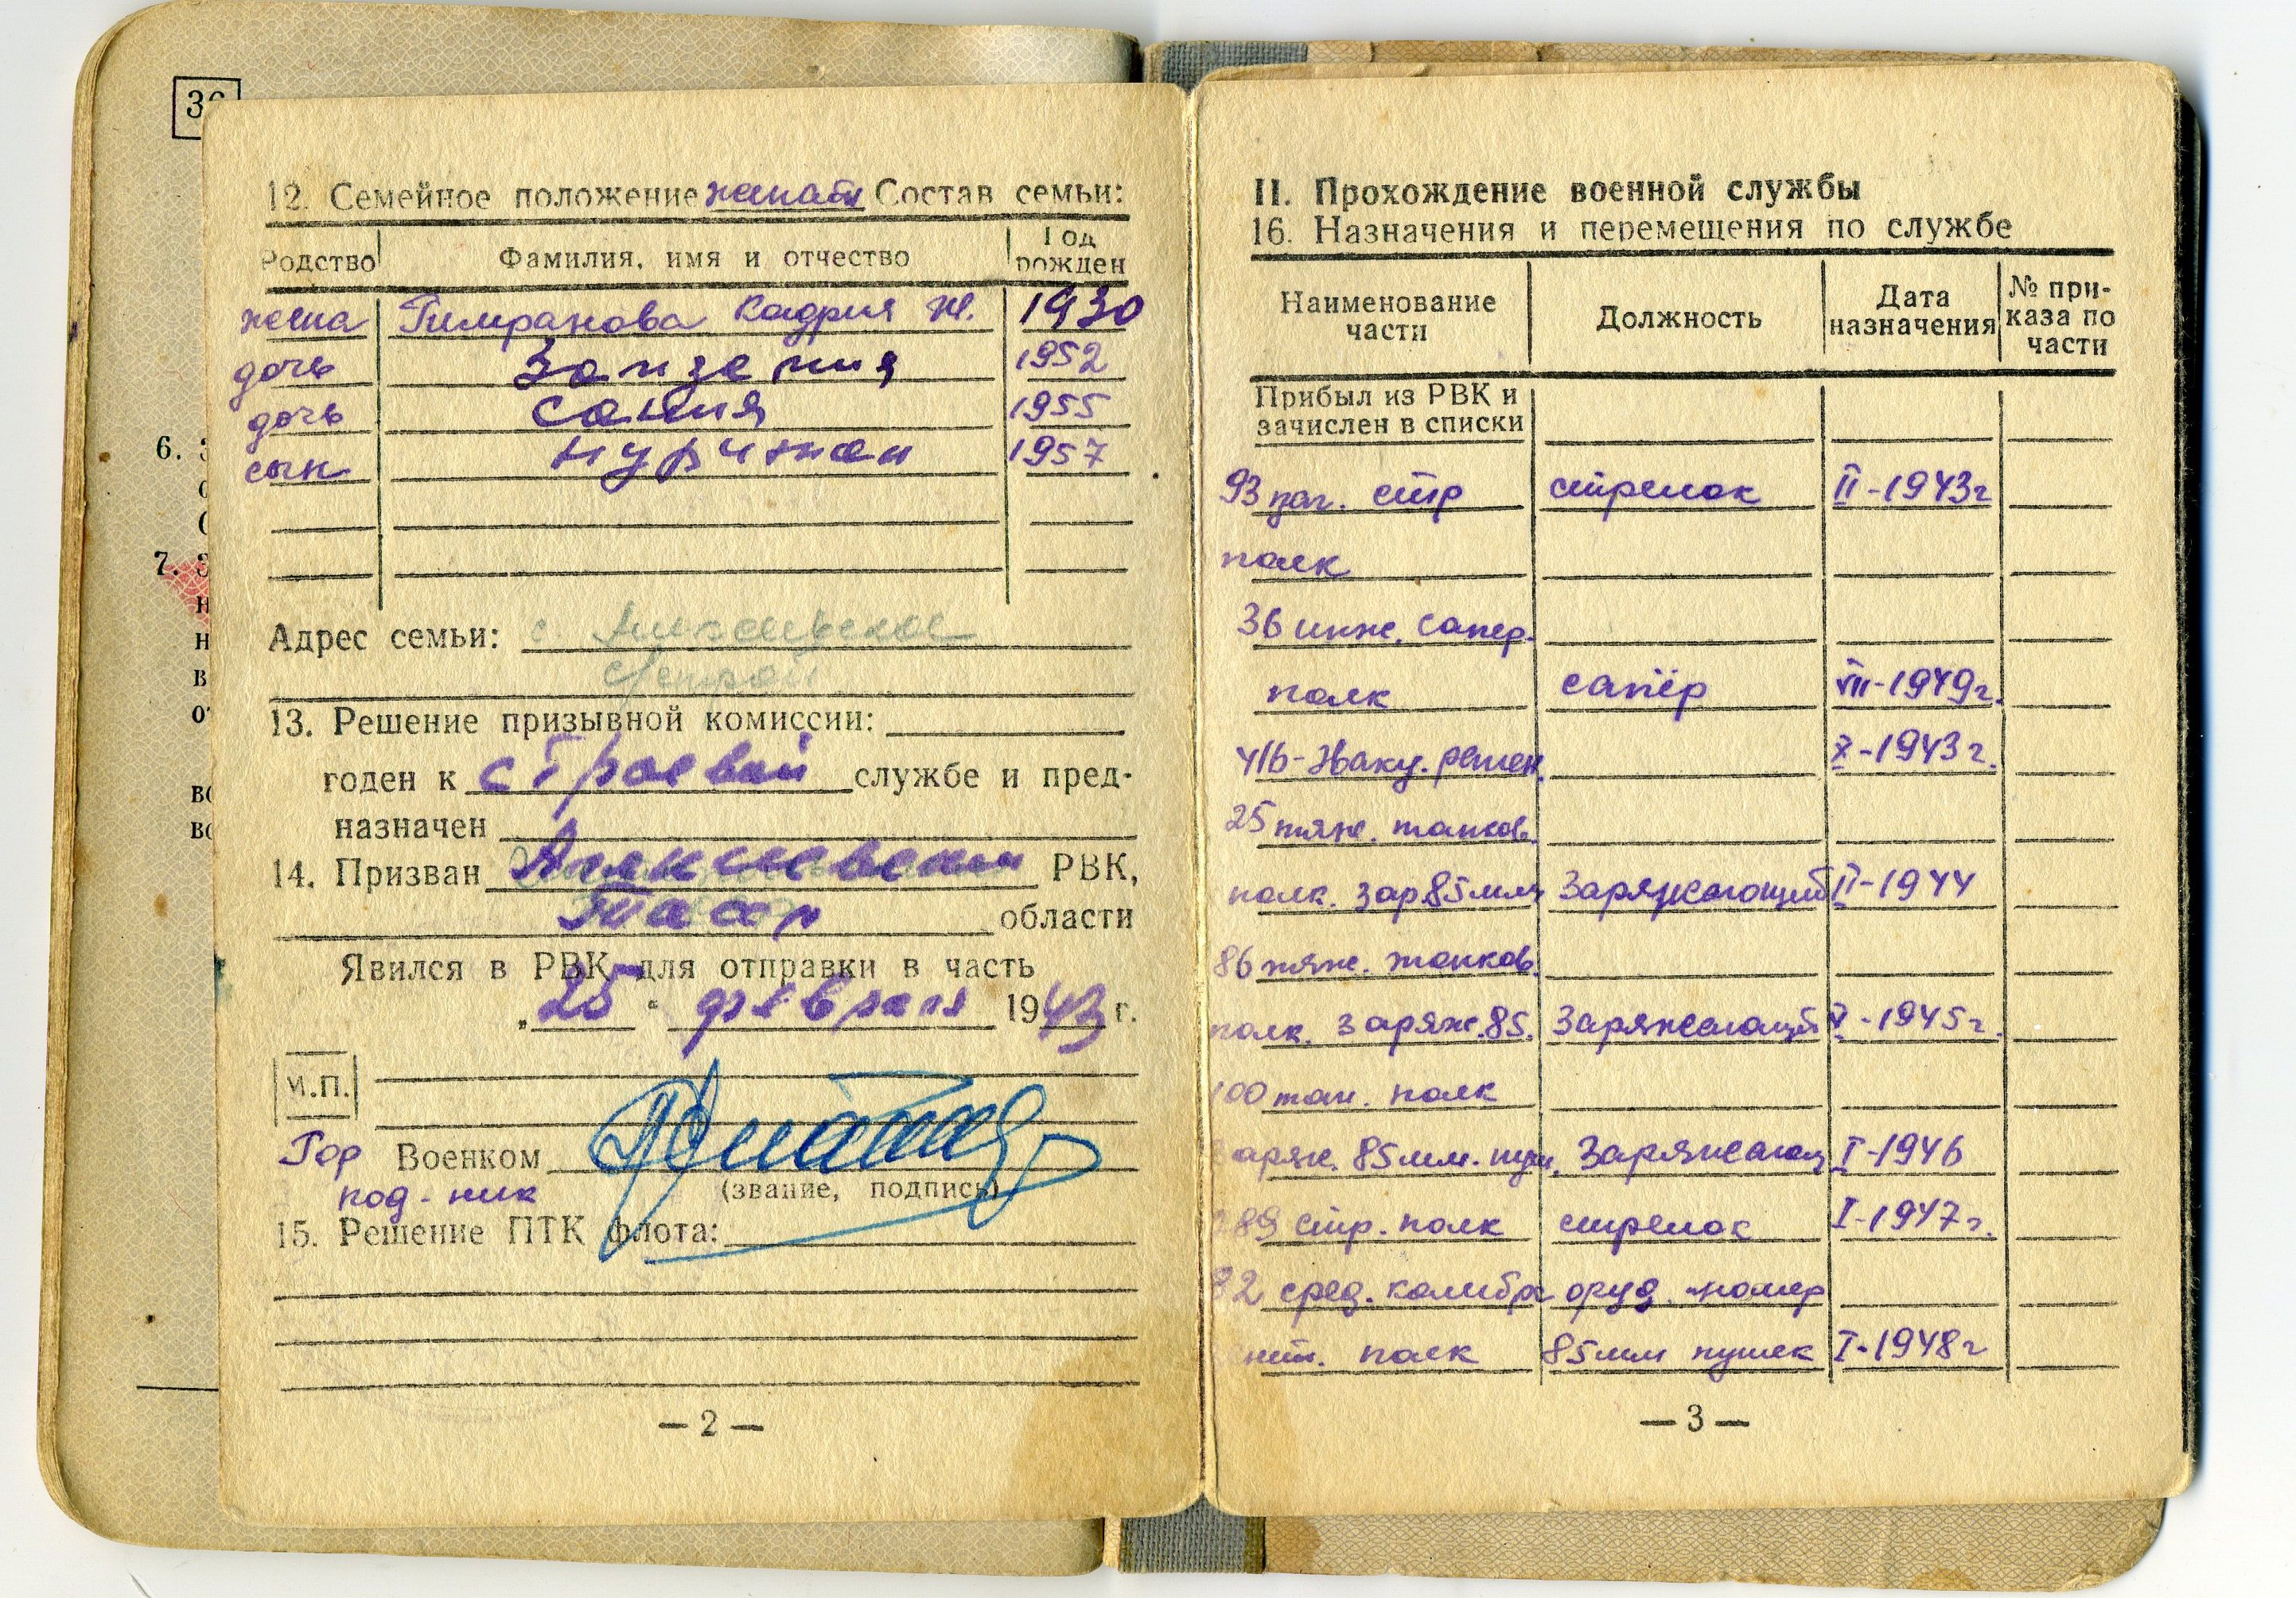 12. Семейное положение женат Состав семьи:
Родство Фамилия, имя и отчество Год рожден
жена Гимранова Кадрия Ж. 1930
дочь 1952
дочь Сания 1955
сын Нуржиан 1957
Адрес семьи: с.
13. Решение призывной комиссии:
годен к строевой службе и пред-
назначен
14. Призван Алексеевским РВК,
области
Явился в РВК для отправки в часть
„25" февраля 1943 г.
М.П.
Гор Военком
под-ник (звание, подпись)
15. Решение ПТК флота:
— 2 —
6.
7.
II. Прохождение военной службы
16. Назначения и перемещения по службе
Наименование части Должность Дата назначения № при-каза по части
Прибыл из РВК и
зачислен в списки
93 зап. стр стрелок II-1943г
полк
36 инж. сапер.
полк сапёр VII-1949г.
416-Эваку. X-1943г.
25 тяж. танков.
полк. зар 85 мм Заряжающий II-1944
86 тяж. танков.
полк. заряж. 85. Заряжающий V-1945г.
100 тан. полк
заряж. 85 мм. пуш. Заряжающ I-1946
89 стр. полк стрелок I-1947г.
92 сред. калибр оруд. номер
зенит. полк 85 мм пушек I-1948г
— 3 —